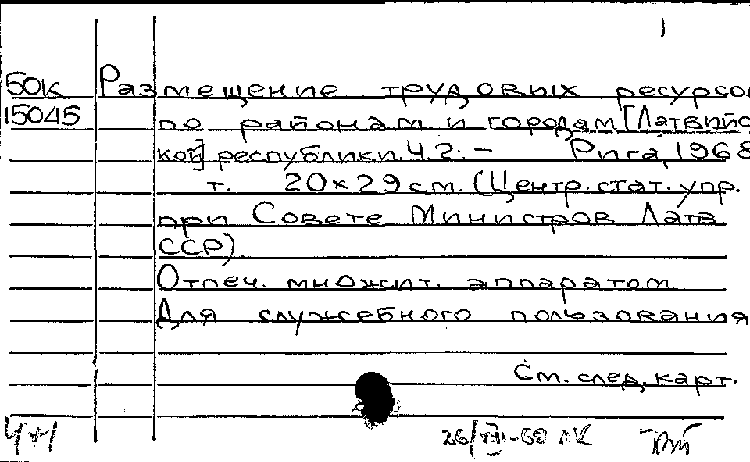 1
50к Размещение трудовых ресурсо
15045 по районам и городам [Латвийс
кой] республики. Ч.2. – Рига, 1968
т. 20×29 см. (Центр. стат. упр.
при Совете Министров Латв
ССР).
Отпеч. множит. аппаратом
Для служебного пользования
См. след. карт.
4+1 26/VII-68 ЛК